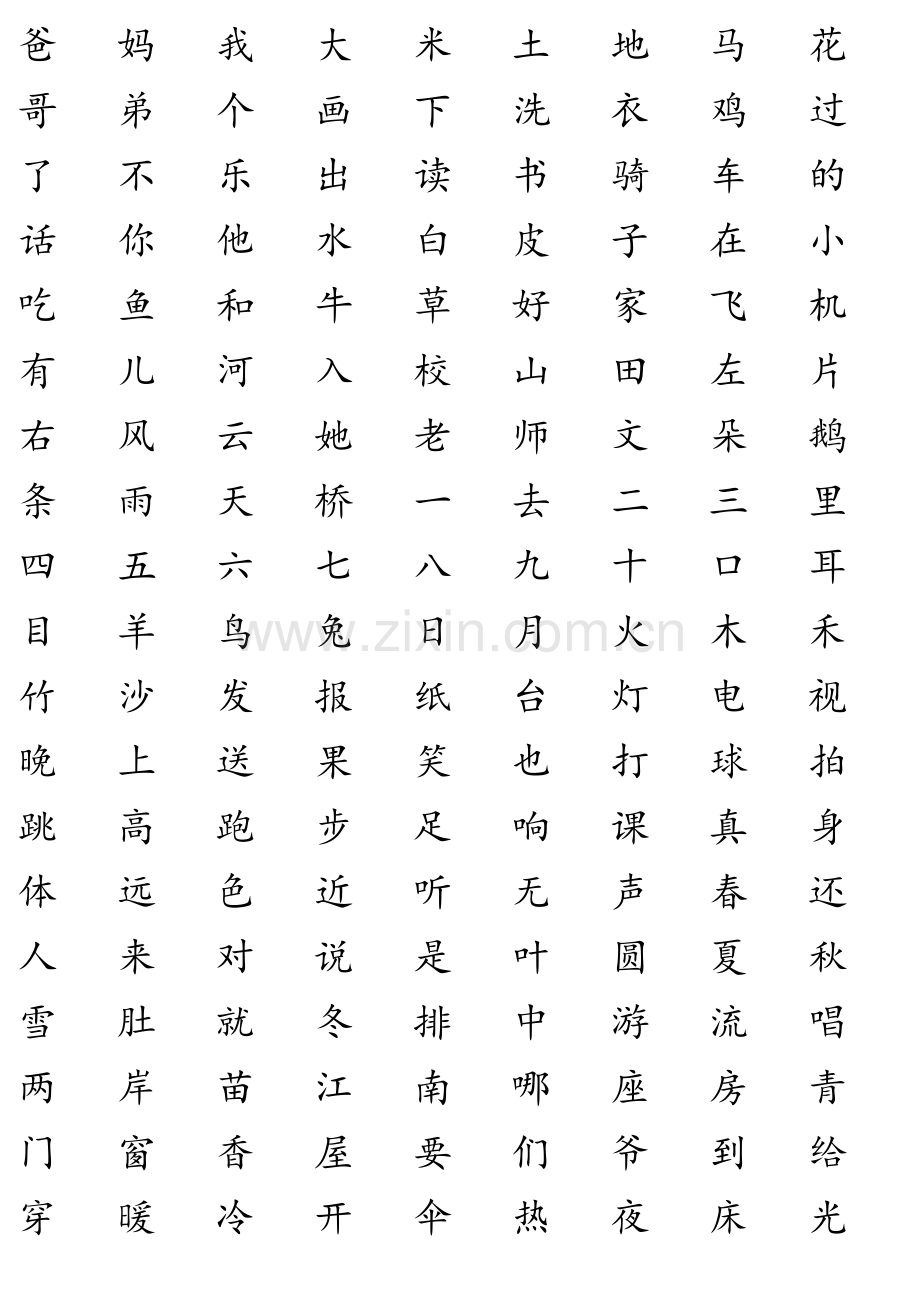 爸 妈 我 大 米 土 地 马 花
哥 弟 个 画 下 洗 衣 鸡 过
了 不 乐 出 读 书 骑 车 的
话 你 他 水 白 皮 子 在 小
吃 鱼 和 牛 草 好 家 飞 机
有 儿 河 入 校 山 田 左 片
右 风 云 她 老 师 文 朵 鹅
条 雨 天 桥 一 去 二 三 里
四 五 六 七 八 九 十 口 耳
目 羊 鸟 兔 日 月 火 木 禾
www.zixin.com.cn
竹 沙 发 报 纸 台 灯 电 视
晚 上 送 果 笑 也 打 球 拍
跳 高 跑 步 足 响 课 真 身
体 远 色 近 听 无 声 春 还
人 来 对 说 是 叶 圆 夏 秋
雪 肚 就 冬 排 中 游 流 唱
两 岸 苗 江 南 哪 座 房 青
门 窗 香 屋 要 们 爷 到 给
穿 暖 冷 开 伞 热 夜 床 光